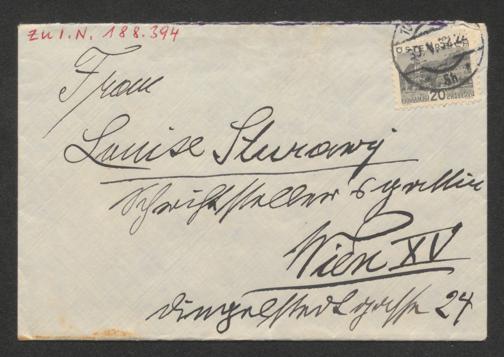 Zu I.N. 188.394
Frau
Louise Sturany
Schriftstellersgattin
Wien XV
Dingelstedtgasse 24
20